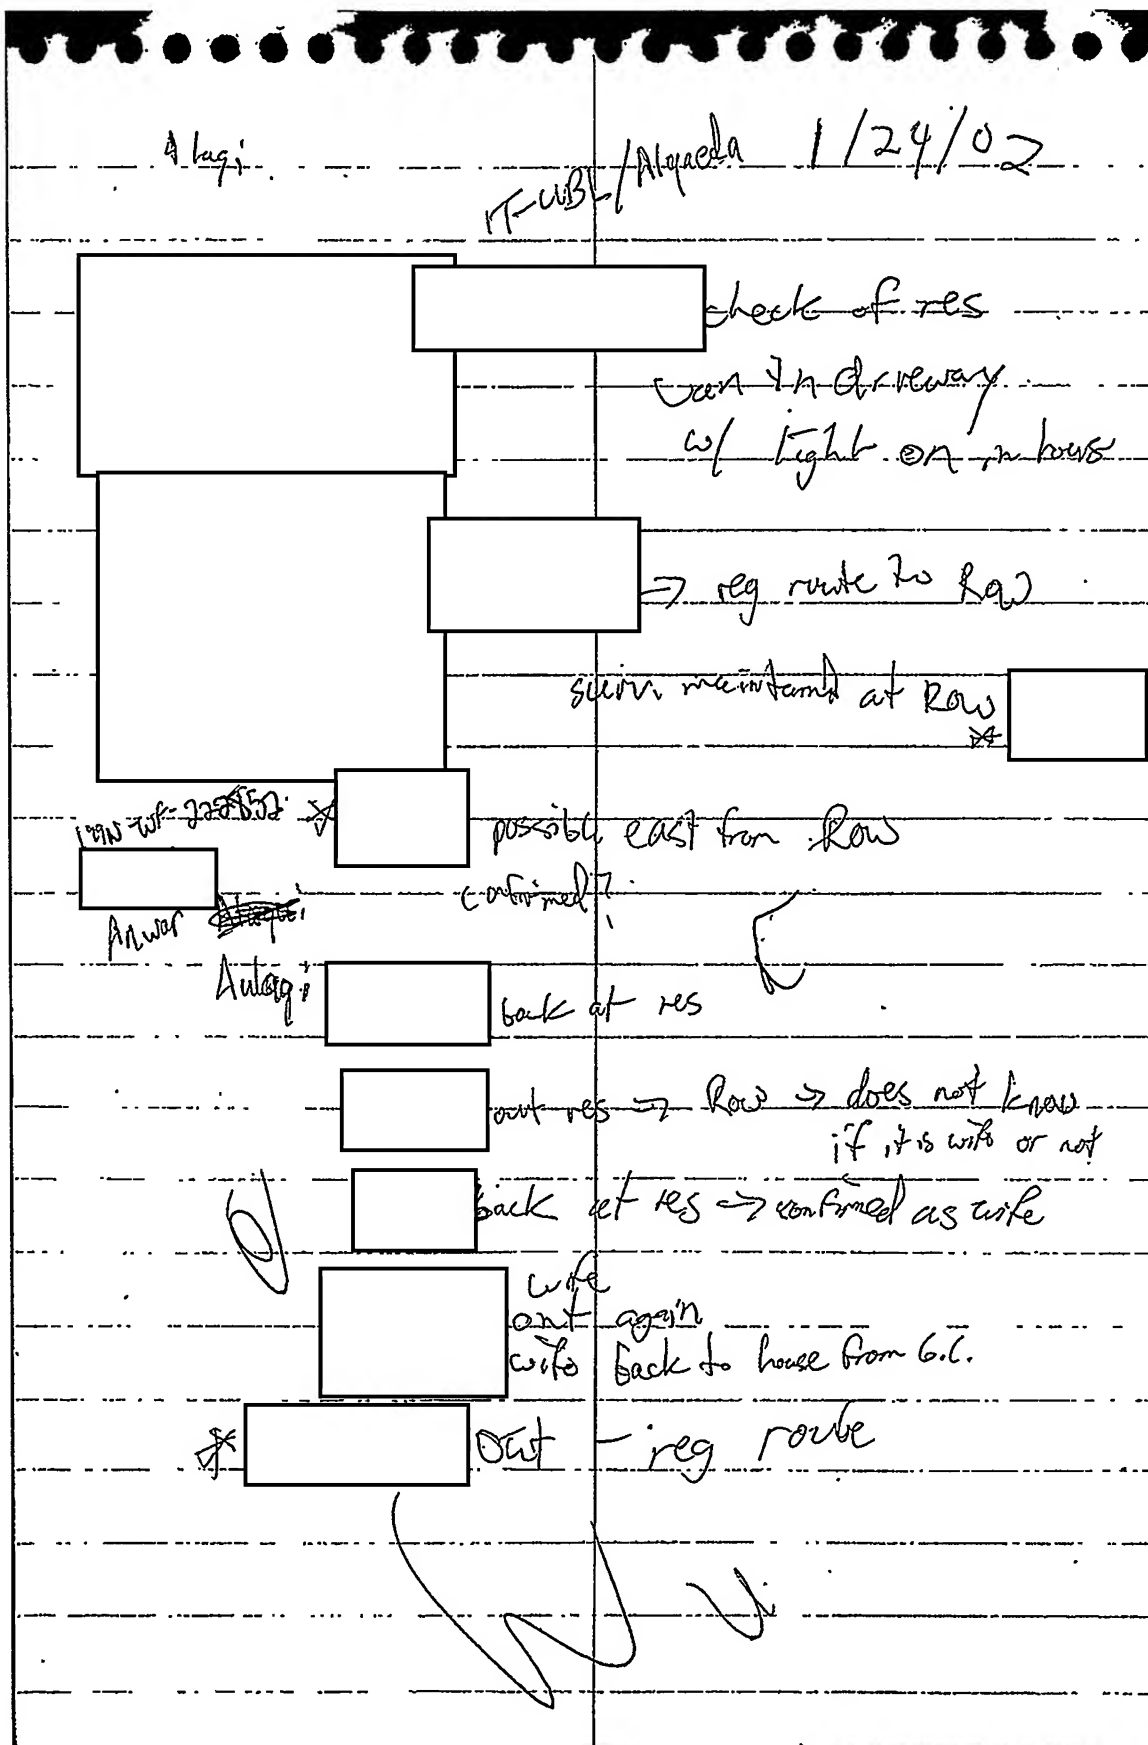 Alaqi
IT-UBL/Alqaeda 1/24/02
check of res
van in driveway
w/ light on in hous
→ reg route to Row
surv. maintand at Row
*
199N-WF-222852 *
possible east from Row
confirmed?
Anwar
Aulaqi
back at res
out res → Row → does not know
if it is wife or not
back at res → confirmed as wife
wife
out again
wife back to house from G.C.
* out - reg route